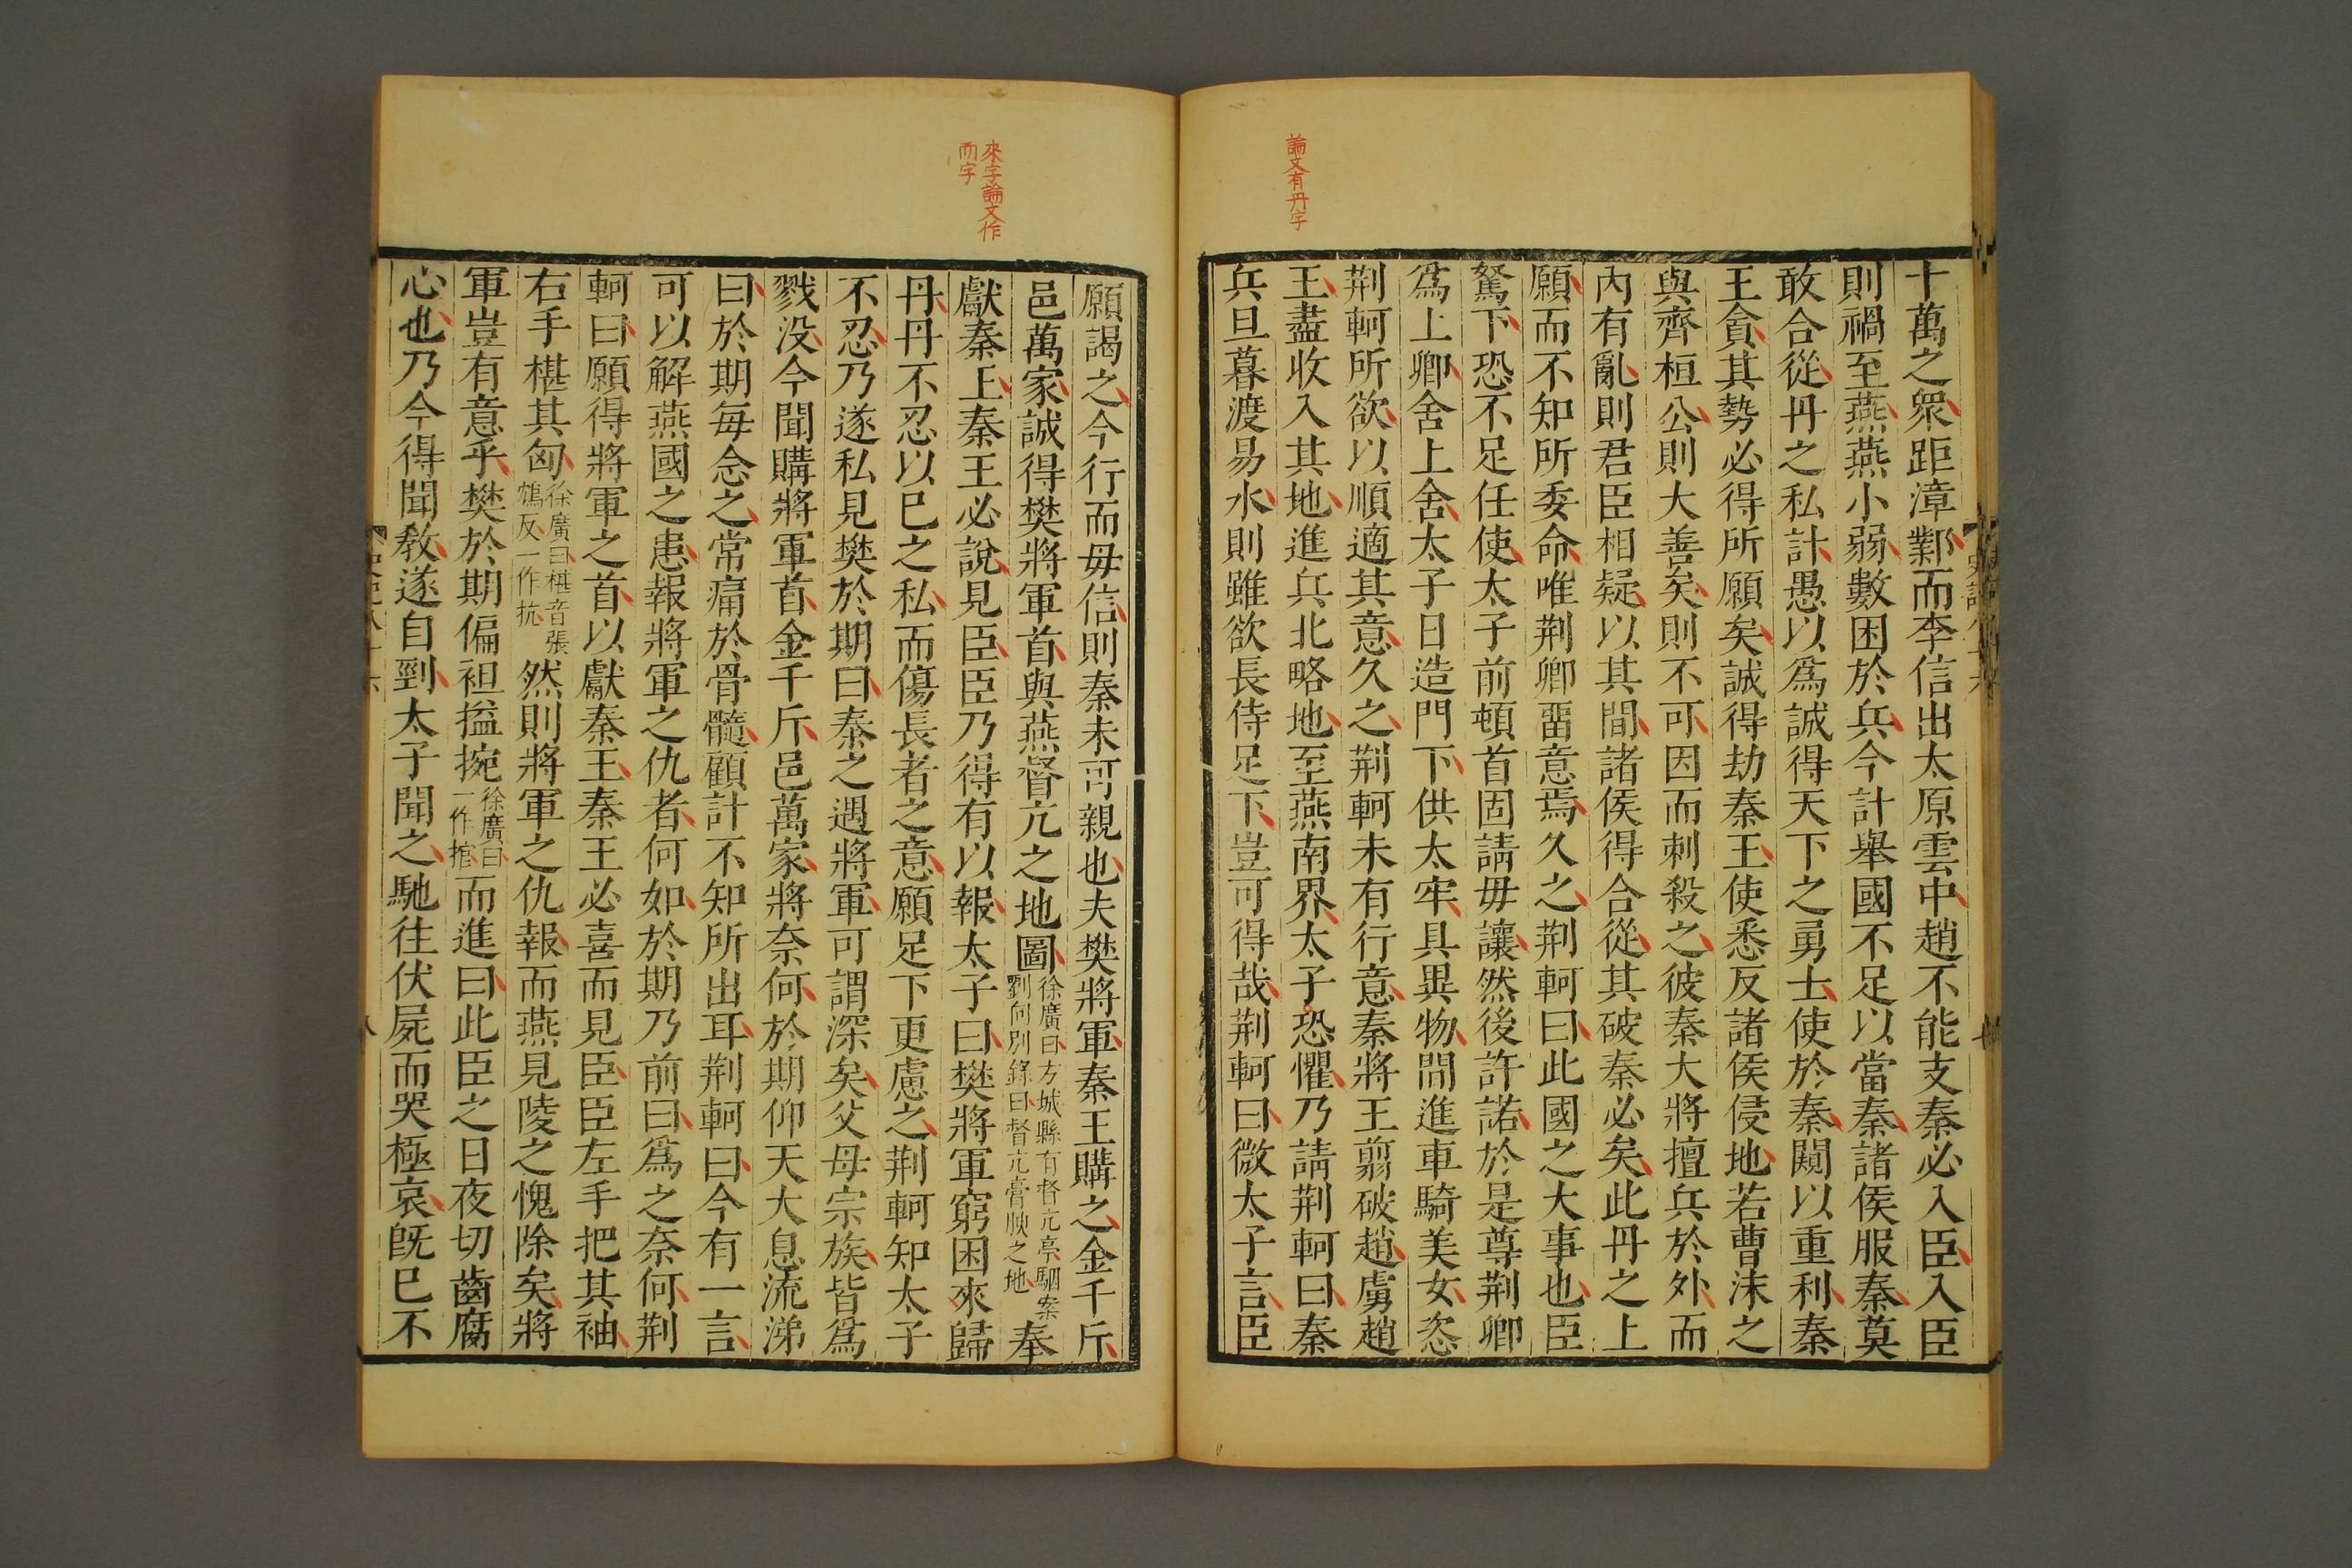 論文有丹字
十萬之眾距漳鄴而李信出太原雲中趙不能支秦必入臣入臣
則禍至燕燕小弱數困於兵今計舉國不足以當秦諸侯服秦莫
敢合從丹之私計愚以爲誠得天下之勇士使於秦闚以重利秦
王貪其勢必得所願矣誠得劫秦王使悉反諸侯侵地若曹沬之
與齊桓公則大善矣則不可因而刺殺之彼秦大將擅兵於外而
內有亂則君臣相疑以其間諸侯得合從其破秦必矣此丹之上
願而不知所委命唯荆卿畱意焉久之荆軻曰此國之大事也臣
駑下恐不足任使太子前頓首固請毋讓然後許諾於是尊荆卿
爲上卿舍上舍太子日造門下供太牢具異物間進車騎美女恣
荆軻所欲以順適其意久之荆軻未有行意秦將王翦破趙虜趙
王盡收入其地進兵北略地至燕南界太子恐懼乃請荆軻曰秦
兵旦暮渡易水則雖欲長侍足下豈可得哉荆軻曰微太子言臣
來字論文作
而字
願謁之今行而毋信則秦未可親也夫樊將軍秦王購之金千斤
邑萬家誠得樊將軍首與燕督亢之地圖徐廣曰方城縣有督亢亭駰案劉向別錄曰督亢膏腴之地奉
獻秦王秦王必說見臣臣乃得有以報太子曰樊將軍窮困來歸
丹丹不忍以已之私而傷長者之意願足下更慮之荆軻知太子
不忍乃遂私見樊於期曰秦之遇將軍可謂深矣父母宗族皆爲
戮没今聞購將軍首金千斤邑萬家將奈何於期仰天大息流涕
曰於期每念之常痛於骨髓顧計不知所出耳荆軻曰今有一言
可以解燕國之患報將軍之仇者何如於期乃前曰爲之奈何荆
軻曰願得將軍之首以獻秦王秦王必喜而見臣臣左手把其袖
右手椹其匈徐廣曰椹音張鴆反一作抗然則將軍之仇報而燕見陵之愧除矣將
軍豈有意乎樊於期偏袒搤捥徐廣曰一作捾而進曰此臣之日夜切齒腐
心也乃今得聞敎遂自剄太子聞之馳往伏屍而哭極哀旣已不